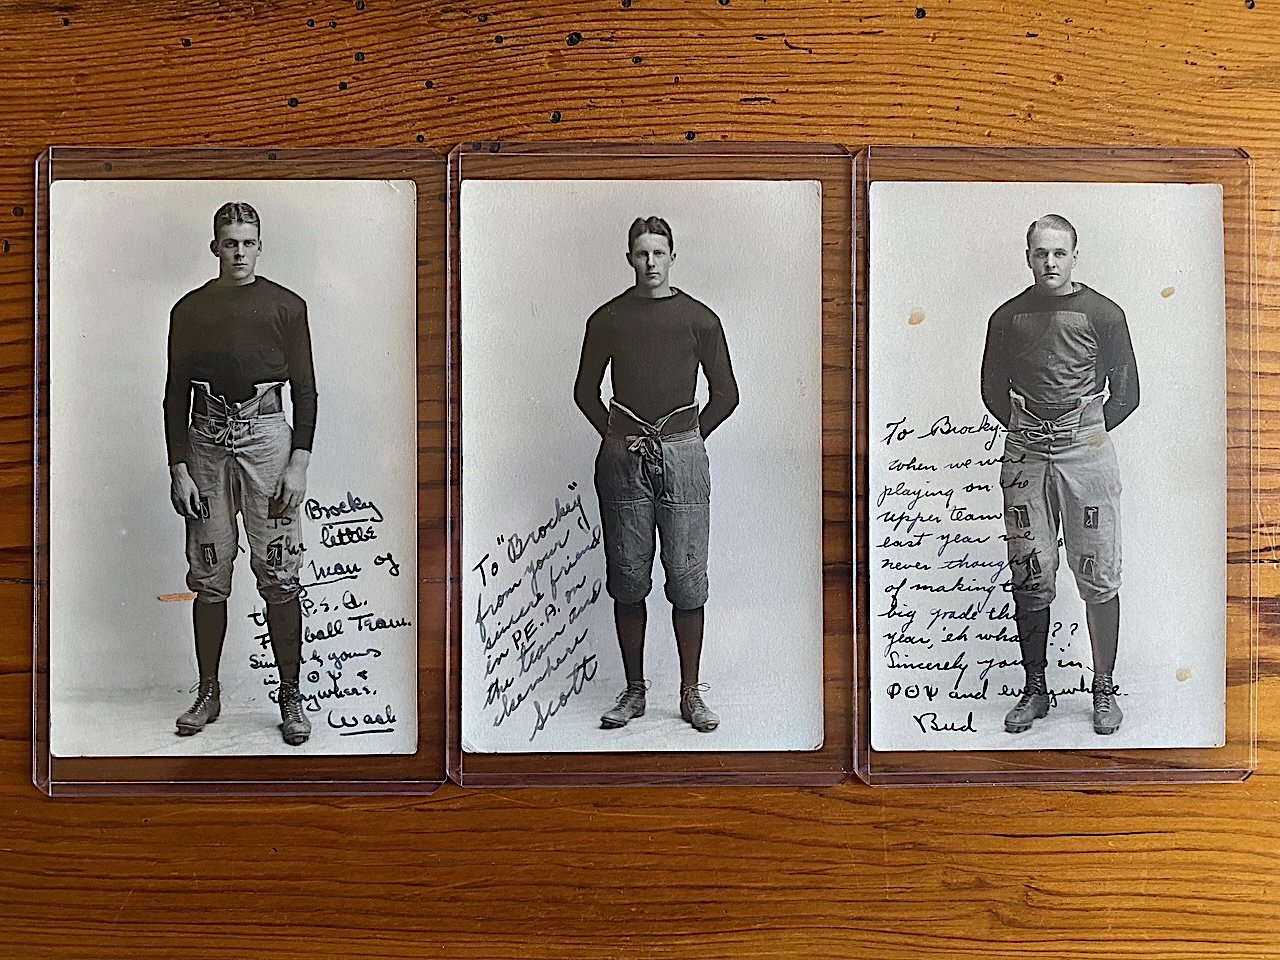 To Brocky
the little
Man of
the P.E.A.
Football Team.
Sincerely yours
in ΘΨ &
Everywhere.
Wack
To "Brockey"
from your
sincere friend
in P.E.A. on
the team and
elsewhere
Scott
To Brocky-
When we were
playing on the
upper team
last year we
never thought
of making the
big grade this
year, 'eh what??
Sincerely yours in
ΦΘΨ and everywhere.
Bud